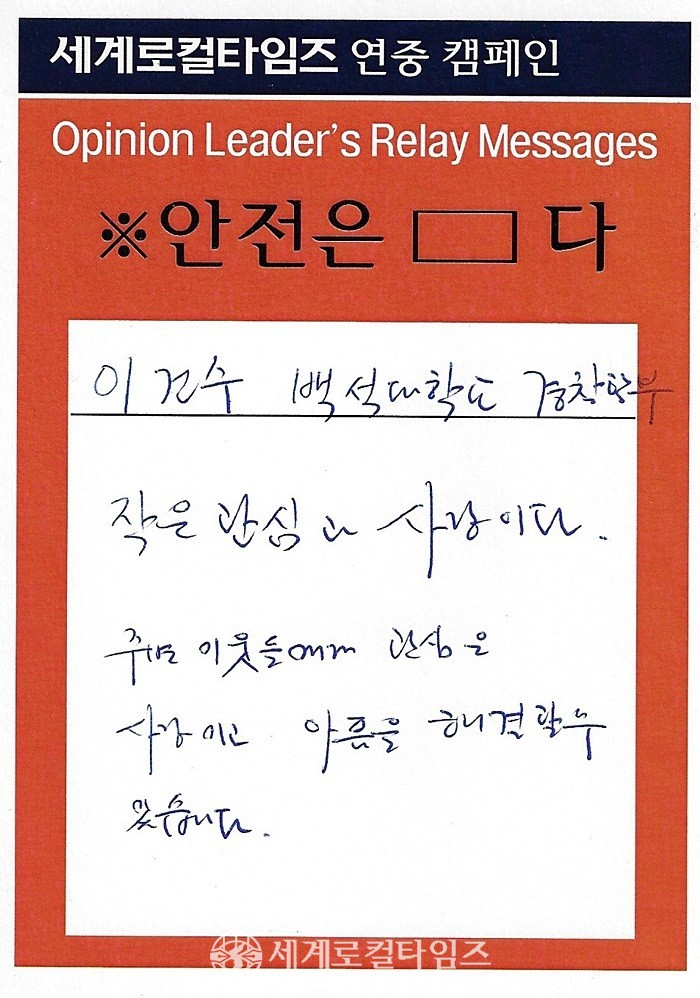 세계로컬타임즈 연중 캠페인
Opinion Leader's Relay Messages
※안전은 □ 다
이건수 백석대학교 경찰학부
작은 관심과 사랑이다.
주변 이웃들에게 관심은
사랑이고 아픔을 해결할수
있습니다.
세계로컬타임즈